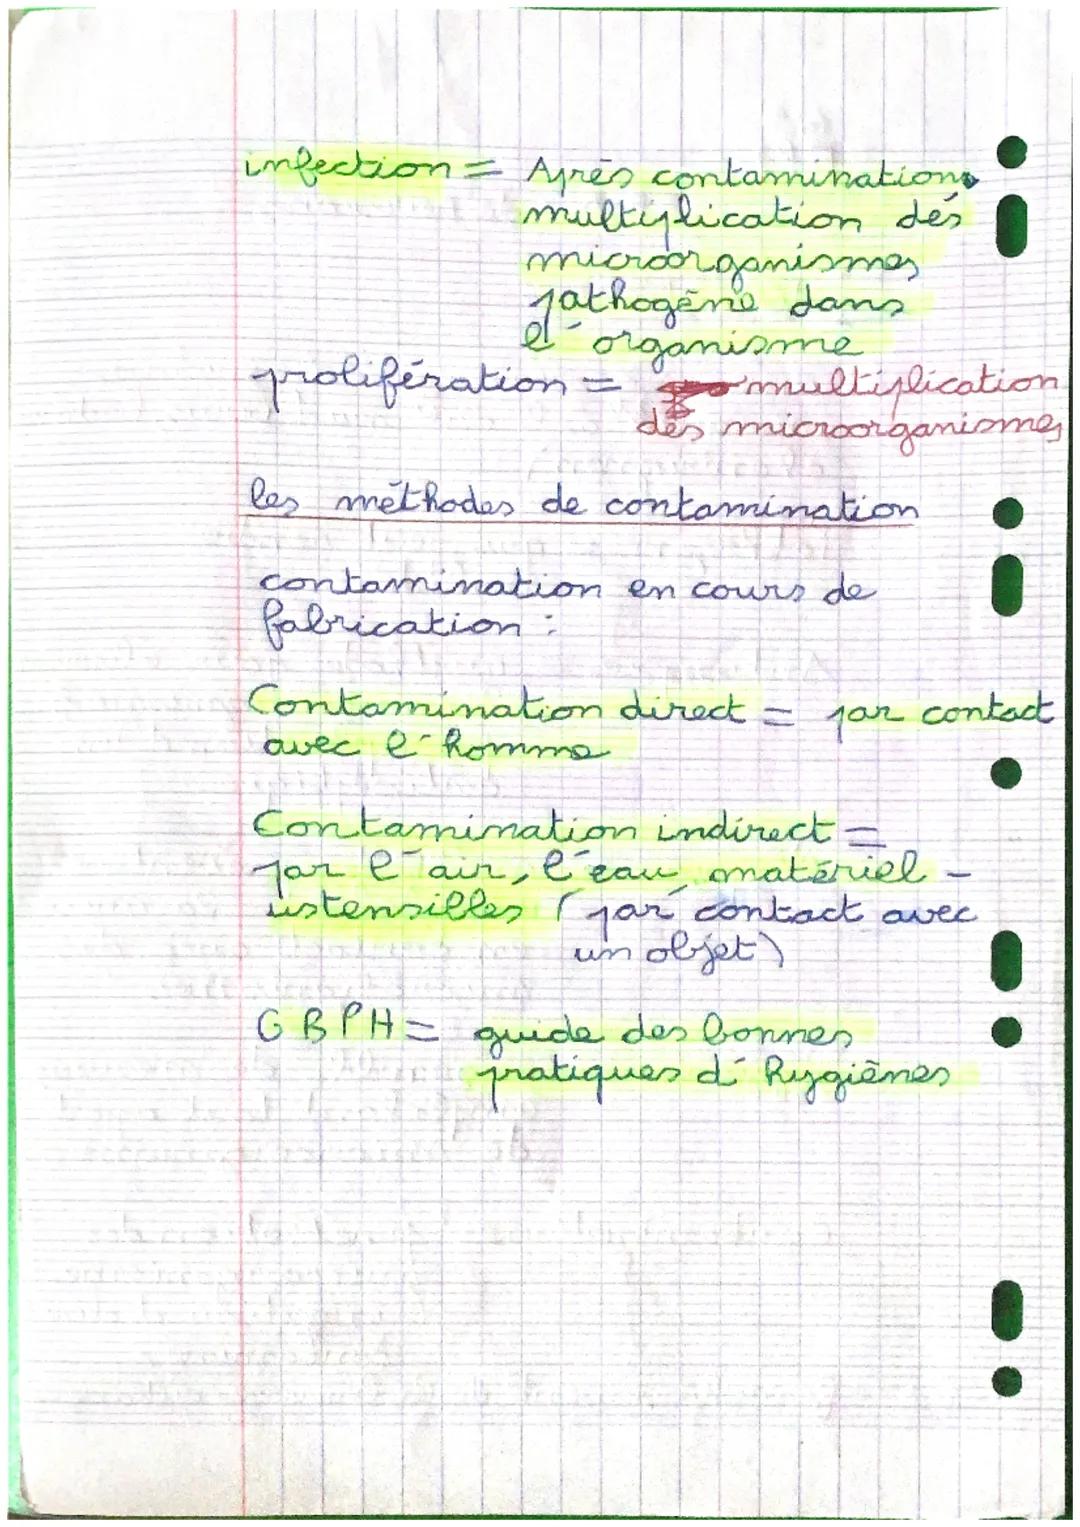 infection = Après contamination,
multiplication des
microorganismes
pathogène dans
l'organisme
prolifération = multiplication
des microorganismes
les méthodes de contamination
contamination en cours de
fabrication :
Contamination direct = par contact
avec l'homme
Contamination indirect =
par l'air, l'eau, matériel -
ustensilles (par contact avec
un objet)
GBPH = guide des bonnes
pratiques d'hygiènes